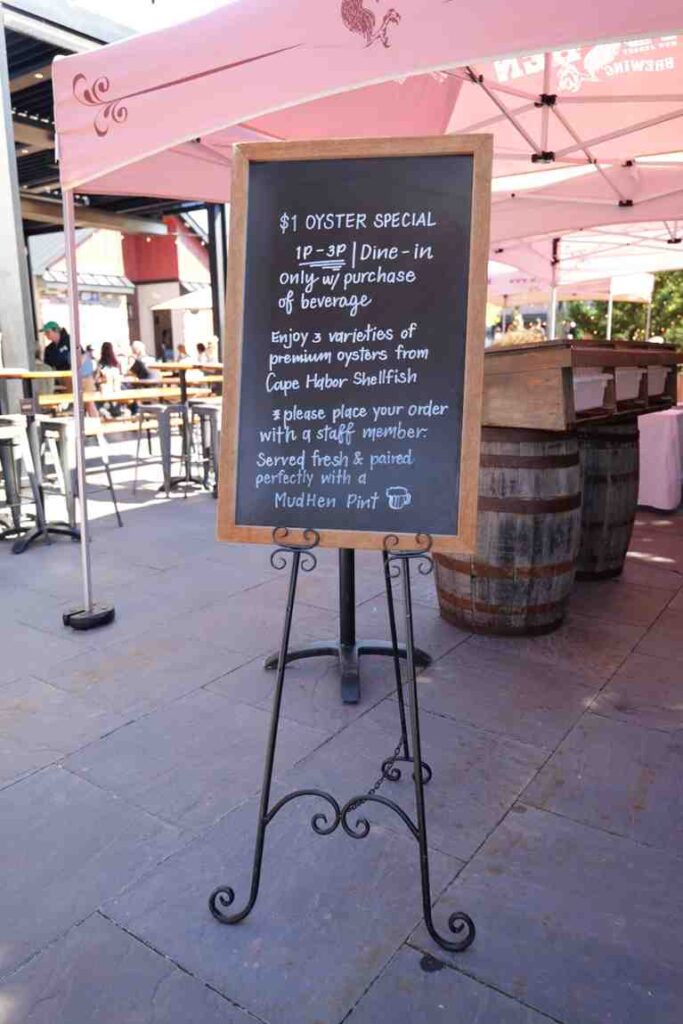 BREWING
$1 OYSTER SPECIAL
1P-3P | Dine-in
only w/ purchase
of beverage
Enjoy 3 varieties of
premium oysters from
Cape Habor Shellfish
* please place your order
with a staff member.
Served fresh & paired
perfectly with a
MudHen Pint